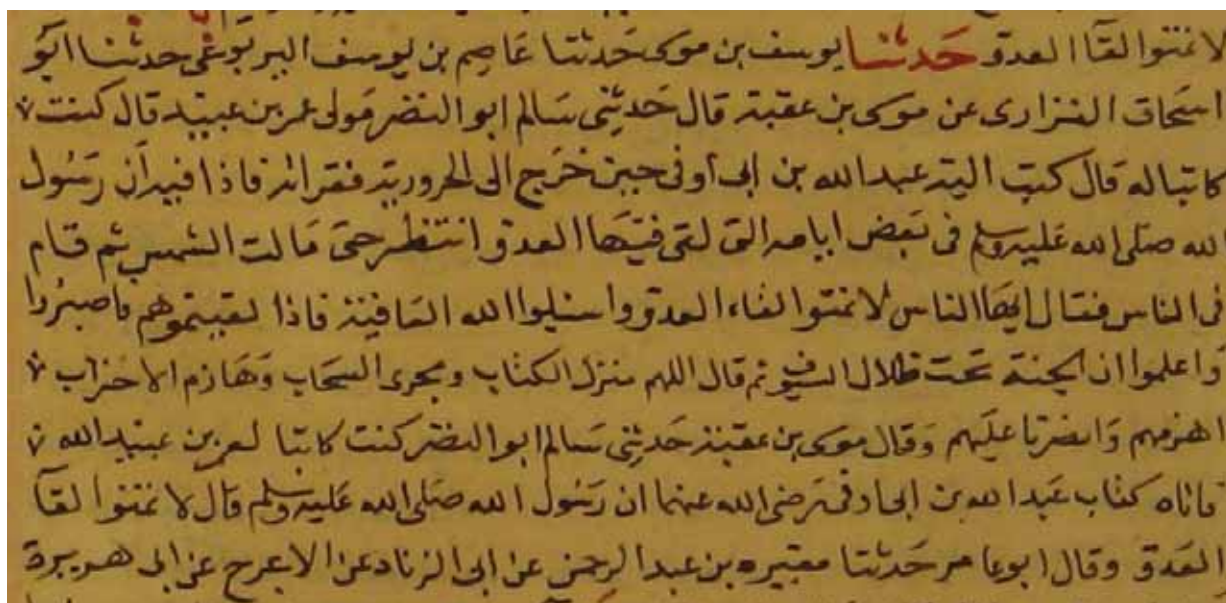 لا تمنوا لقآ العدو حدثنا يوسف بن موسى حدثنا عاصم بن يوسف اليربوعى حدثنا ابو
اسحاق الفزارى عن موسى بن عقبة قال حدثنى سالم ابو النضر مولى عمر بن عبيد قال كنت
كاتبا له قال كتب اليه عبد الله بن ابى اوفى حين خرج الى الحرورية فقرائه فاذا فيه ان رسول
الله صلى الله عليه وسلم فى بعض ايامه التى لقى فيها العدو انتظر حتى مالت الشمس ثم قام
فى الناس فقال ايها الناس لا تمنوا لقاء العدو واسئلوا الله العافية فاذا لقيتموهم فاصبروا
واعلموا ان الجنة تحت ظلال السيوف ثم قال اللهم منزل الكتاب ومجرى السحاب وهازم الاحزاب
اهزمهم وانصرنا عليهم وقال موسى بن عقبة حدثنى سالم ابو النضر كنت كاتبا لعمر بن عبيد الله
فاتاه كتاب عبد الله بن ابى اوفى رضى الله عنهما ان رسول الله صلى الله عليه وسلم قال لا تمنوا لقآ
العدو وقال ابو عامر حدثنا مغيره بن عبد الرحمن عن ابى الزناد عن الاعرج عن ابى هريرة